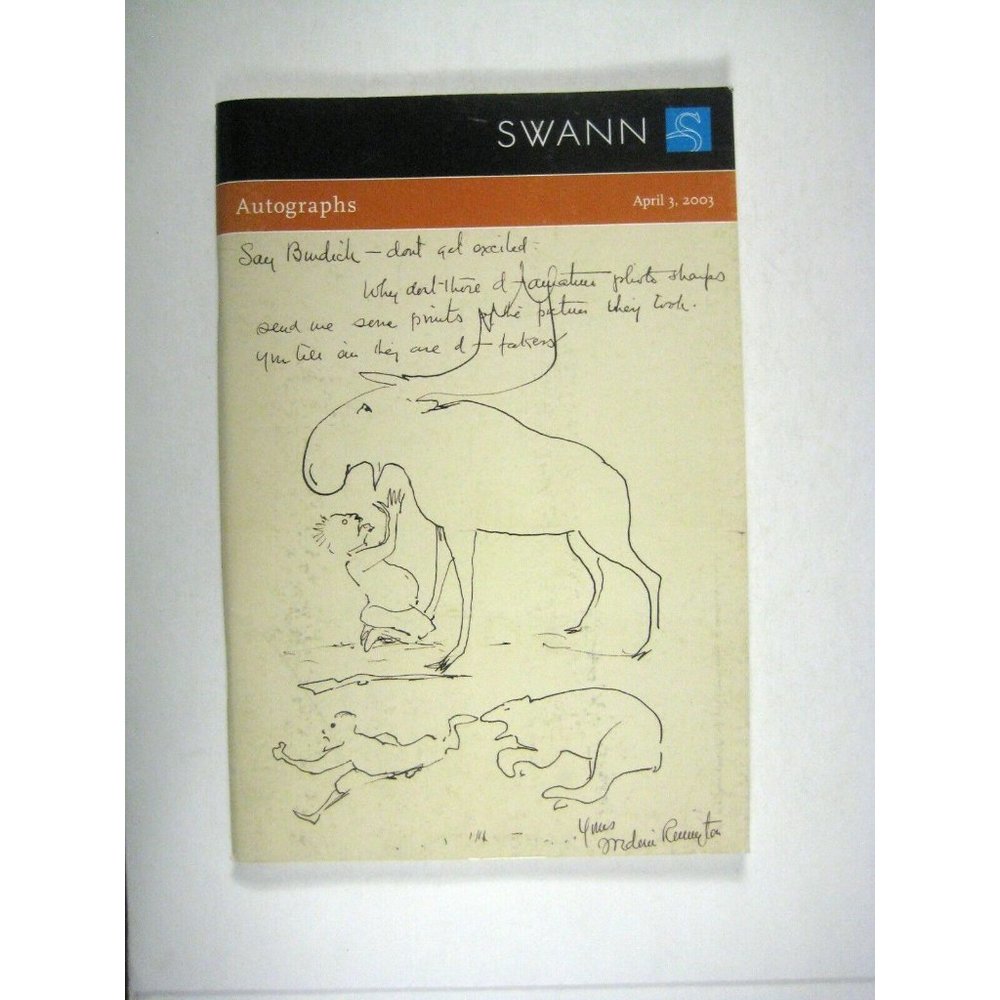 SWANN
Autographs
April 3, 2003
Say Burdick – dont get excited.
Why dont those d– amateur photo sharps
send me some prints of the pictures they took.
You tell em they are d– fakers
Yours
Frederic Remington